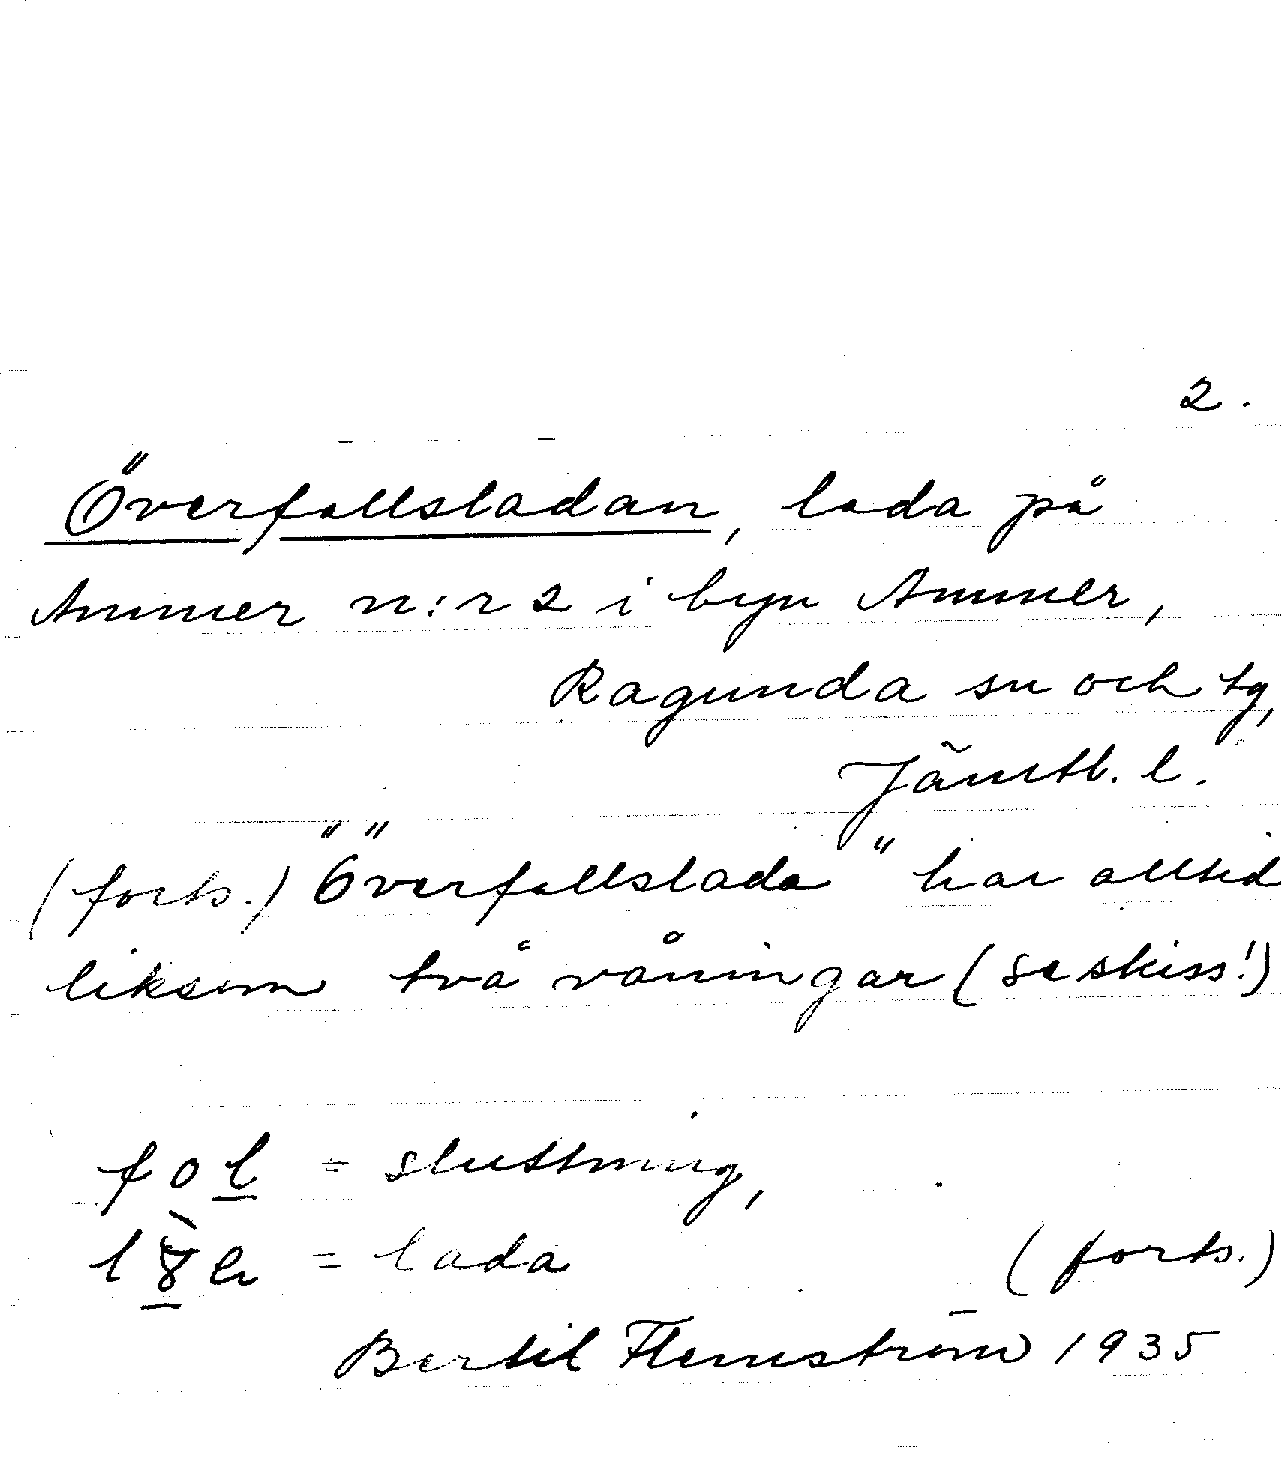 2.
Överfallsladan, lada på
Ammer n:r 2 i byn Ammer,
Ragunda sn och tg,
Jämtl. l.
(forts.) "Överfallslada" har alltid
liksom två våningar (se skiss!)
fol = sluttning,
= lada
(forts.)
Bertil Flemström 1935